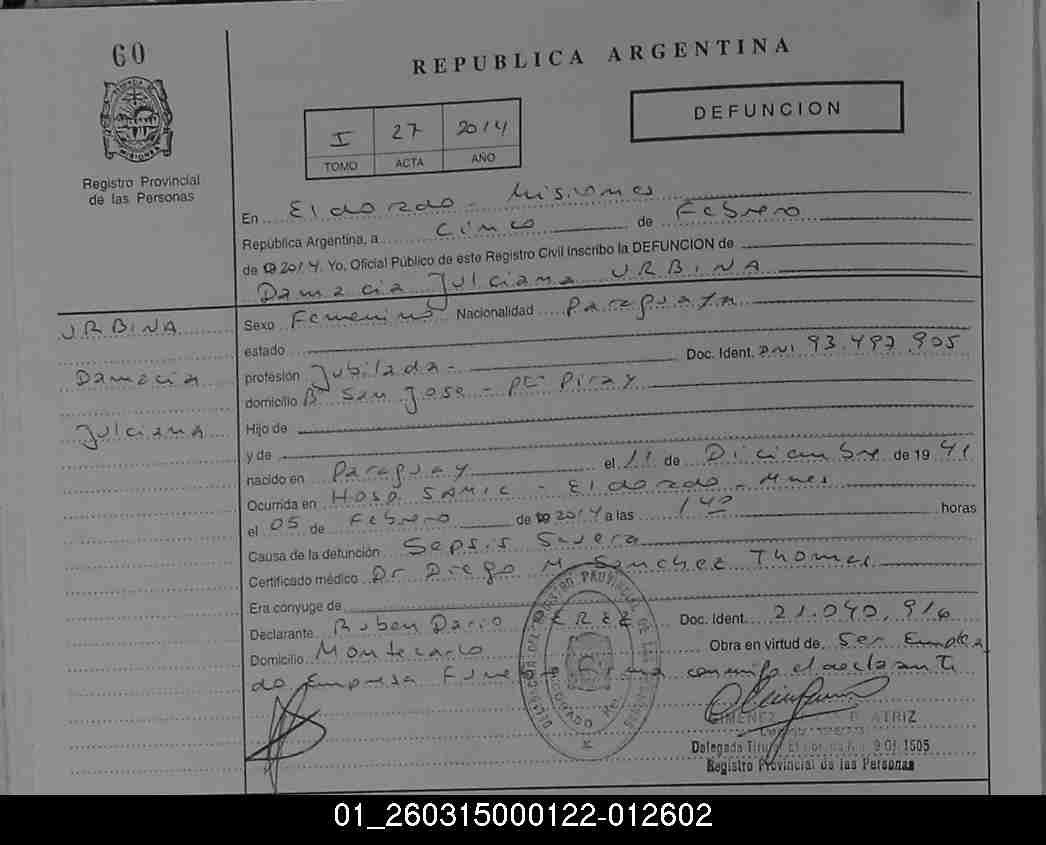 60
REPUBLICA ARGENTINA
DEFUNCION
I 27 2014
TOMO ACTA AÑO
Registro Provincial
de las Personas
En Eldorado - Misiones
República Argentina, a cinco de Febrero
de 19 2014 Yo, Oficial Público de este Registro Civil inscribo la DEFUNCION de
Damacia Julciana URBINA
URBINA
Damacia
Julciana
Sexo Femenino Nacionalidad Paraguaya
estado
profesión Jubilada - Doc. Ident. DNI 93.497.905
domicilio Bº San Jose - Pto Piray
Hijo de
y de
nacido en Paraguay el 11 de Diciembre de 1941
Ocurrida en Hosp SAMIC - Eldorado - Mnes
el 05 de Febrero de 19 2014 a las 1 40 horas
Causa de la defunción Sepsis Severa
Certificado médico Dr Diego M Sanchez Thomas
Era cónyuge de
Declarante Ruben Dario Doc. Ident. 21.040.916
Domicilio Montecarlo Obra en virtud de Ser Emplea
do Empresa Funebre Firma conmigo el declarante
BEATRIZ
Delegada Titular
Registro Provincial de las Personas
01_260315000122-012602